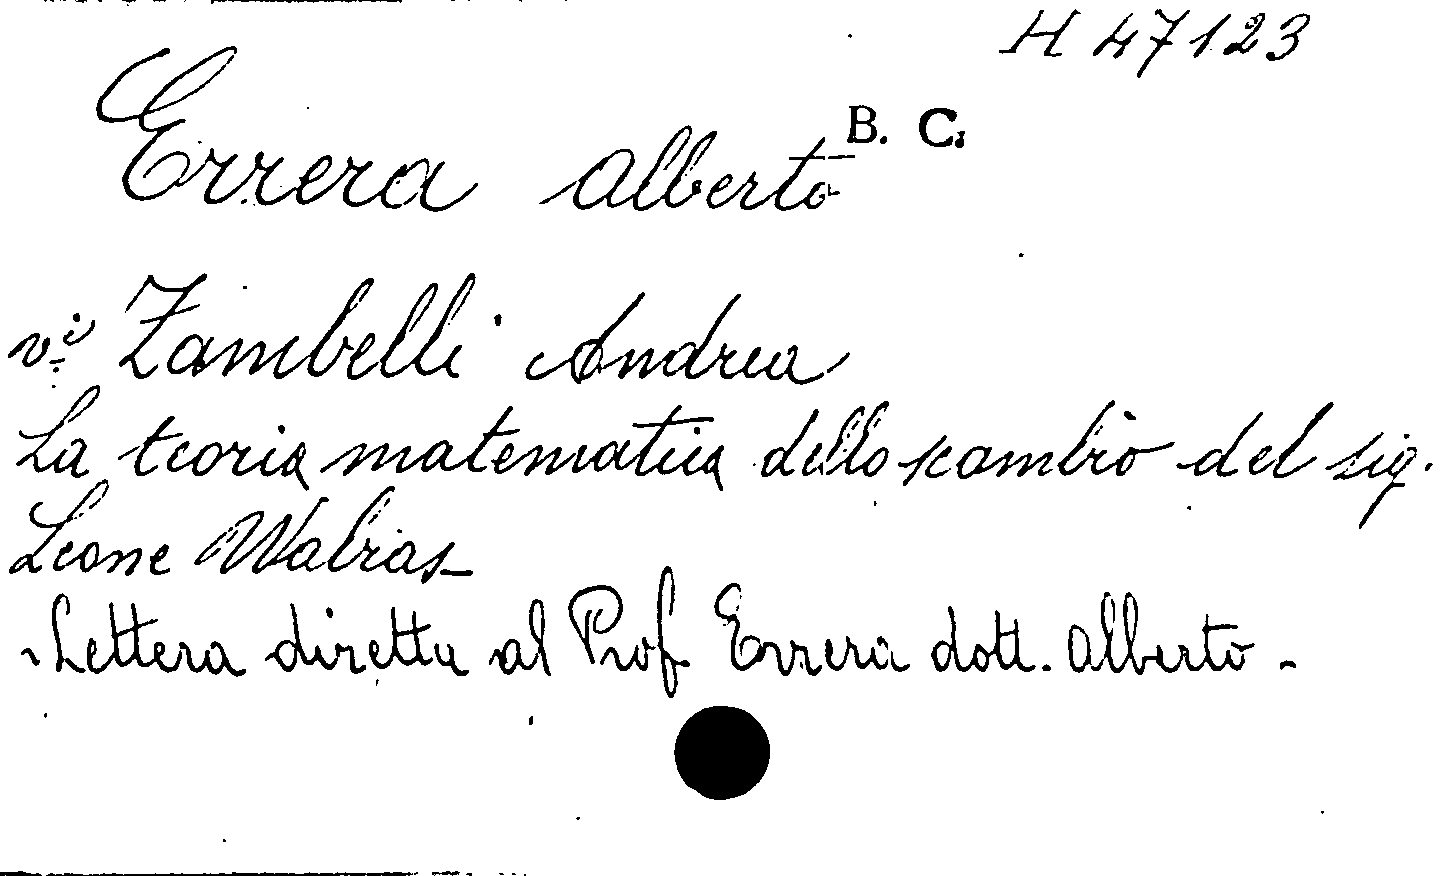 H 47123
B. C.
Errera Alberto
vi. Zambelli Andrea
La teoria matematica dello scambio del sig.
Leone Walras
Lettera diretta al Prof Errera dott. Alberto -